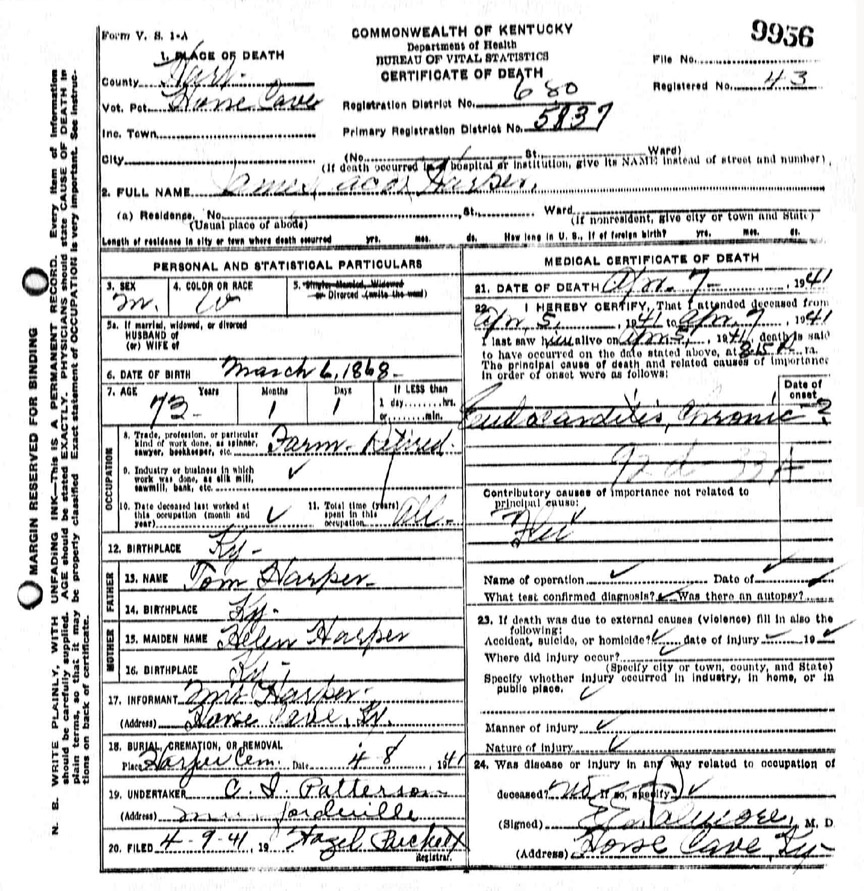 Form V. S. 1-A
COMMONWEALTH OF KENTUCKY
Department of Health
BUREAU OF VITAL STATISTICS
CERTIFICATE OF DEATH
9956
File No.
Registered No. 43
1. PLACE OF DEATH
County Hart
Vot. Pct. Horse Cave
Inc. Town
City
Registration District No. 680
Primary Registration District No. 5837
(No. St. Ward)
(If death occurred in a hospital or institution, give its NAME instead of street and number)
2. FULL NAME James Harper
(a) Residence. No. St. Ward
(Usual place of abode) (If nonresident, give city or town and State)
Length of residence in city or town where death occurred yrs. mos. ds. How long in U. S., if of foreign birth? yrs. mos. ds.
PERSONAL AND STATISTICAL PARTICULARS
3. SEX M. 4. COLOR OR RACE W 5. Single, Married, Widowed
or Divorced (write the word)
5a. If married, widowed, or divorced
HUSBAND of
(or) WIFE of
6. DATE OF BIRTH March 6, 1868
7. AGE Years Months Days If LESS than
73 1 1 1 day......hrs.
or......min.
OCCUPATION
8. Trade, profession, or particular
kind of work done, as spinner,
sawyer, bookkeeper, etc. Farm - Retired
9. Industry or business in which
work was done, as silk mill,
sawmill, bank, etc. ✓
10. Date deceased last worked at
this occupation (month and
year) ✓
11. Total time (years)
spent in this
occupation All
12. BIRTHPLACE Ky-
FATHER
13. NAME Tom Harper
14. BIRTHPLACE Ky-
MOTHER
15. MAIDEN NAME Helen Harper
16. BIRTHPLACE Ky-
17. INFORMANT Harper
(Address) Horse Cave, Ky.
18. BURIAL, CREMATION, OR REMOVAL
Place Harper Cem. Date 4 8, 1941
19. UNDERTAKER C. I. Patterson
(Address)
20. FILED 4-9-41, 19 Hazel Puckett
Registrar.
MEDICAL CERTIFICATE OF DEATH
21. DATE OF DEATH Apr. 7-, 1941
22. I HEREBY CERTIFY, That I attended deceased from
Apr. 5, 1941 to Apr. 7, 1941
I last saw him alive on Apr 5, 1941, death is said
to have occurred on the date stated above, at 8:15 m.
The principal cause of death and related causes of importance
in order of onset were as follows:
Date of
onset
Endocarditis, Chronic ?
Contributory causes of importance not related to
principal cause:
Flu
Name of operation ✓ Date of ✓
What test confirmed diagnosis? ✓ Was there an autopsy? ✓
23. If death was due to external causes (violence) fill in also the
following:
Accident, suicide, or homicide? ✓ date of injury ✓ 19 ✓
Where did injury occur?
(Specify city or town, county, and State)
Specify whether injury occurred in industry, in home, or in
public place. ✓
Manner of injury ✓
Nature of injury ✓
24. Was disease or injury in any way related to occupation of
deceased? No If so, specify ✓
(Signed) M. D.
(Address) Horse Cave, Ky-
MARGIN RESERVED FOR BINDING
N. B. WRITE PLAINLY, WITH UNFADING INK—THIS IS A PERMANENT RECORD. Every item of information
should be carefully supplied. AGE should be stated EXACTLY. PHYSICIANS should state CAUSE OF DEATH in
plain terms, so that it may be properly classified. Exact statement of OCCUPATION is very important. See instruc-
tions on back of certificate.